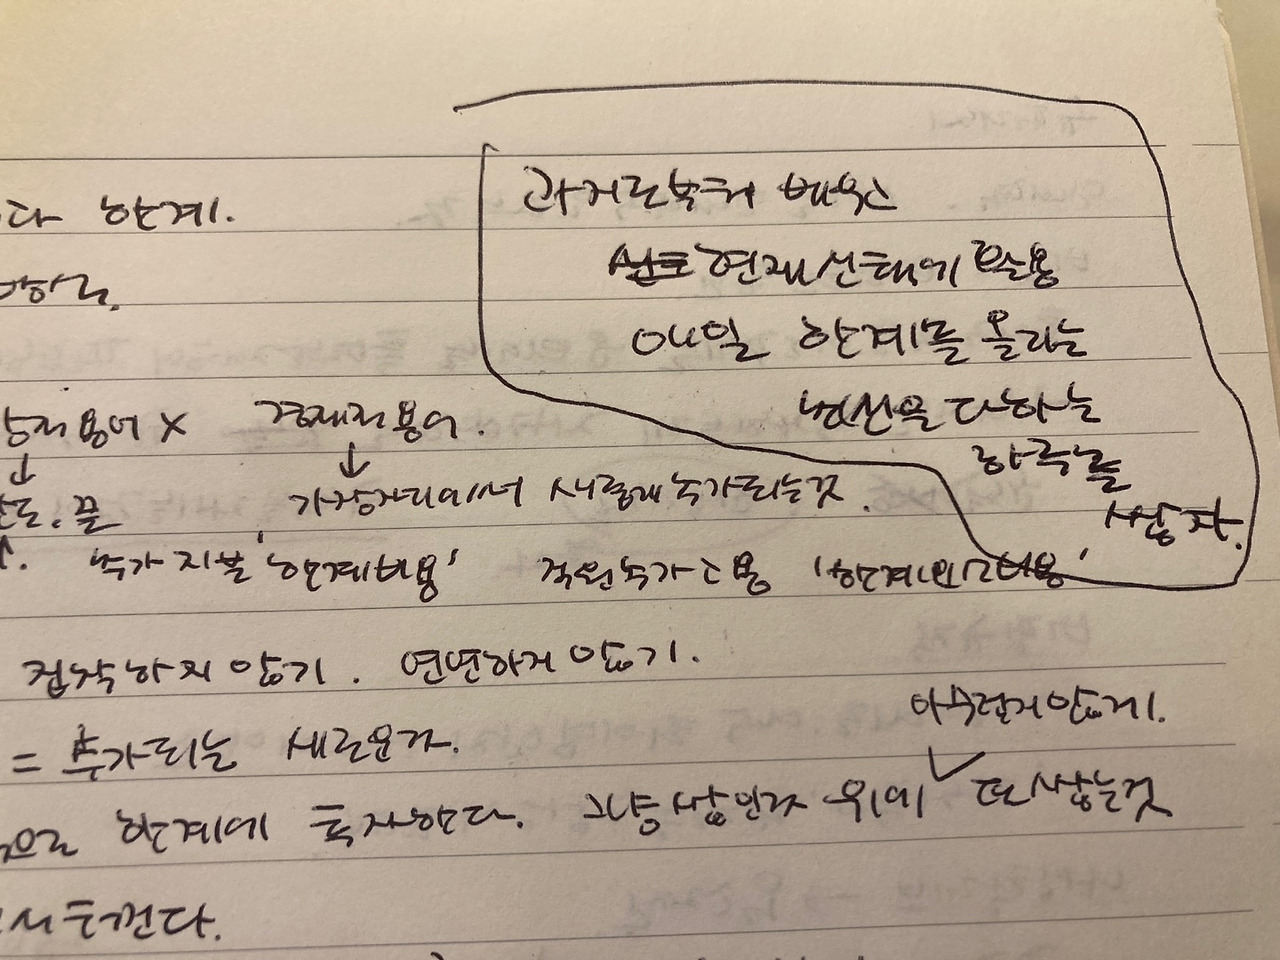 과거로부터 배우고
다 한계.
현재 선택에 활용
매일 한계를 올리는
최선을 다하는
하루를
쌓자.
용어 X 경제적 용어.
↓ ↓
한도. 끝 가장자리에서 새롭게 추가되는 것.
추가 지불 '한계비용' 직원 추가 고용 '한계인건비용'
집착하지 않기. 연연하지 않기.
아무렇지 않게.
= 추가되는 새로운 자.
으로 한계에 투자한다. 그냥 쌓인 자 위에 ✓ 또 쌓는 것
서 느낀다.